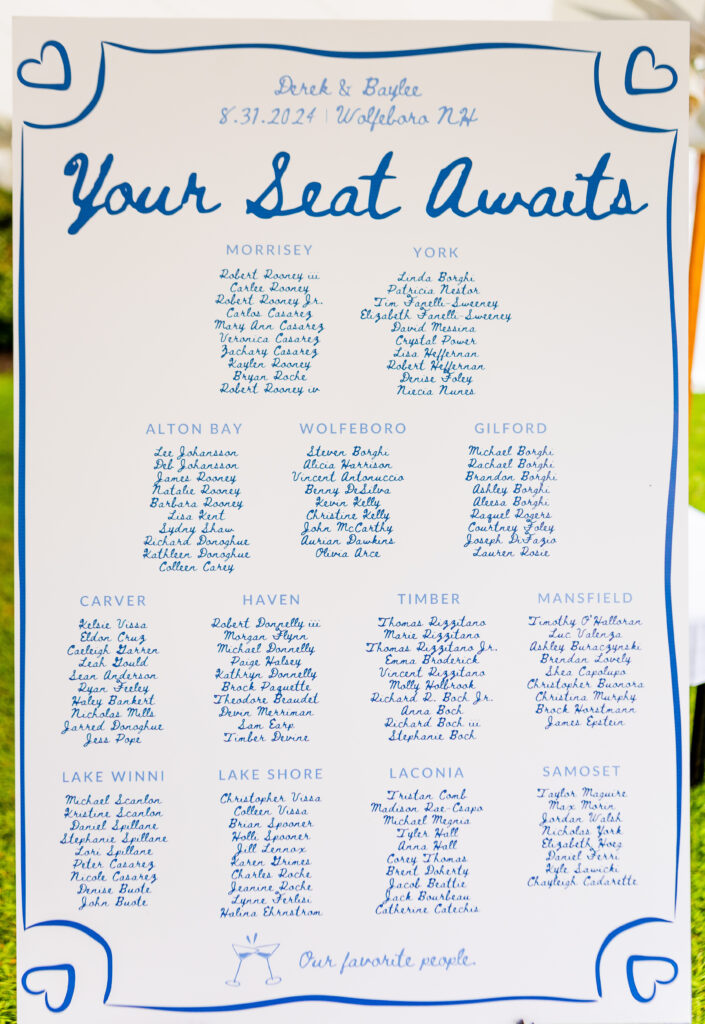 Derek & Baylee
8.31.2024 | Wolfeboro NH
Your Seat Awaits
MORRISEY
Robert Rooney iii
Carlee Rooney
Robert Rooney Jr.
Carlos Casarez
Mary Ann Casarez
Veronica Casarez
Zachary Casarez
Kaylen Rooney
Bryan Roche
Robert Rooney iv
YORK
Linda Borghi
Patricia Nestor
Tim Fanelli-Sweeney
Elizabeth Fanelli-Sweeney
David Messina
Crystal Power
Lisa Heffernan
Robert Heffernan
Denise Foley
Niecia Nunes
ALTON BAY
Lee Johansson
Deb Johansson
James Rooney
Natalie Rooney
Barbara Rooney
Lisa Kent
Sydny Shaw
Richard Donoghue
Kathleen Donoghue
Colleen Carey
WOLFEBORO
Steven Borghi
Alicia Harrison
Vincent Antonuccio
Benny DeSilva
Kevin Kelly
Christine Kelly
John McCarthy
Aurian Dawkins
Olivia Arce
GILFORD
Michael Borghi
Rachael Borghi
Brandon Borghi
Ashley Borghi
Aleesa Borghi
Raquel Rogers
Courtney Foley
Joseph DiFazio
Lauren Rosie
CARVER
Kelsie Vissa
Eldon Cruz
Caeleigh Garren
Leah Gould
Sean Anderson
Ryan Feeley
Haley Bankert
Nicholas Mills
Jarred Donoghue
Jess Pope
HAVEN
Robert Donnelly iii
Morgan Flynn
Michael Donnelly
Paige Halsey
Kathryn Donnelly
Brock Paquette
Theodore Beaudet
Devin Merriman
Sam Earp
Timber Devine
TIMBER
Thomas Rizzitano
Marie Rizzitano
Thomas Rizzitano Jr.
Emma Broderick
Vincent Rizzitano
Molly Holbrook
Richard R. Boch Jr.
Anna Boch
Richard Boch iii
Stephanie Boch
MANSFIELD
Timothy O'Halloran
Luc Valenza
Ashley Buraczynski
Brendan Lovely
Shea Capolupo
Christopher Buonora
Christina Murphy
Brock Horstmann
James Epstein
LAKE WINNI
Michael Scanlon
Kristine Scanlon
Daniel Spillane
Stephanie Spillane
Lori Spillane
Peter Casarez
Nicole Casarez
Denise Buote
John Buote
LAKE SHORE
Christopher Vissa
Colleen Vissa
Brian Spooner
Holli Spooner
Jill Lennox
Karen Grimes
Charles Roche
Jeanine Roche
Lynne Ferlisi
Halina Ehrnstrom
LACONIA
Tristan Comb
Madison Rae-Csapo
Michael Megnia
Tyler Hall
Anna Hall
Corey Thomas
Brent Doherty
Jacob Beattie
Jack Bourbeau
Catherine Catechis
SAMOSET
Taylor Maguire
Max Morin
Jordan Walsh
Nicholas York
Elizabeth Hoeg
Daniel Ferri
Kyle Sawicki
Chayleigh Cadarette
Our favorite people.